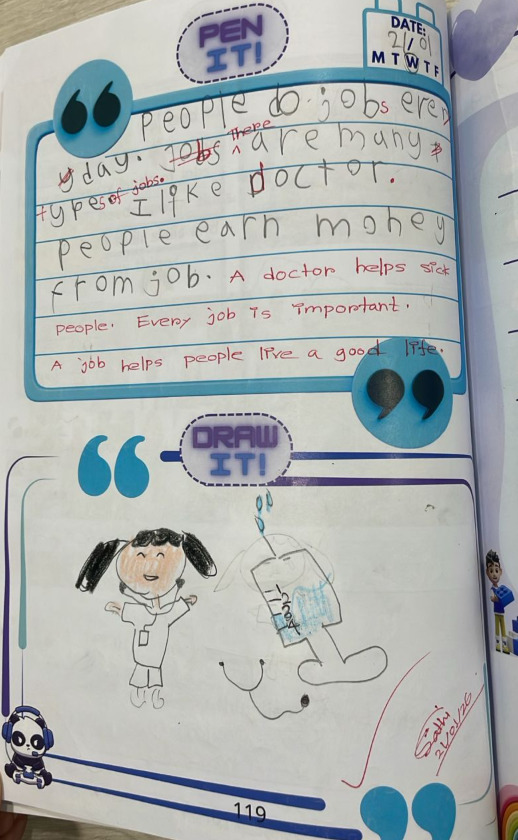 PEN
IT!
DATE:
21/01
M T W T F
people do jobs every
day. jobs There are many
types of jobs. I like doctor.
people earn money
from job. A doctor helps sick
people. Every job is important.
A job helps people live a good life.
DRAW
IT!
Shot
21/01/26
119